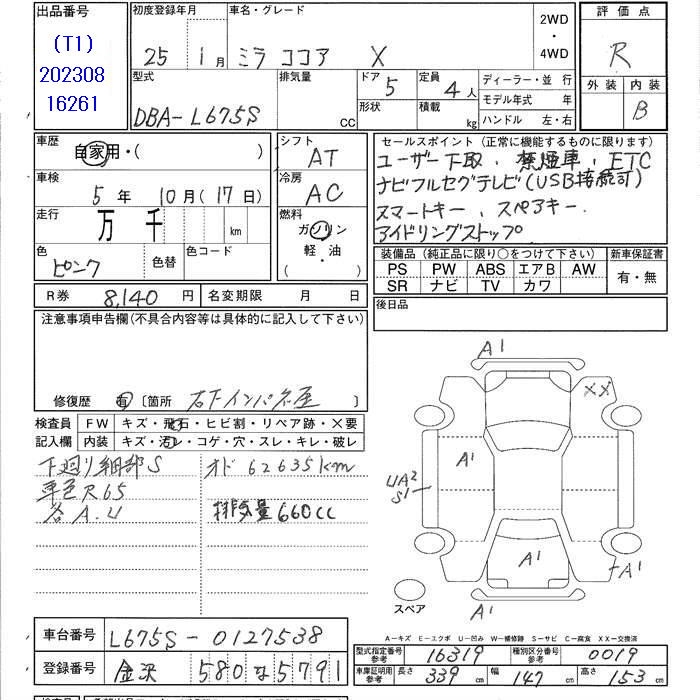 出品番号
(T1)
202308
16261
初度登録年月 25 1月
車名・グレード ミラ ココア X
2WD
・
4WD
評価点 R
外装 内装 B
型式 DBA-L675S
排気量 CC
ドア 5
定員 4人
形状
積載 kg
ディーラー・並 行
モデル年式 年
ハンドル 左・右
車歴 自家用・( )
車検 5年 10月(17日)
走行 万 千 km
色 ピンク 色替
色コード
シフト AT
冷房 AC
燃料 ガソリン
軽・油
( ・ )
セールスポイント(正常に機能するものに限ります)
ユーザー下取、禁煙車、ETC
ナビフルセグテレビ(USB接続可)
スマートキー、スペアキー
アイドリングストップ
装備品(純正品に限り○をつけて下さい) 新車保証書
PS PW ABS エアB AW 有・無
SR ナビ TV カワ
後日品
R券 8,140円 名変期限 月 日
注意事項申告欄(不具合内容等は具体的に記入して下さい)
修復歴 有 〔箇所 右下インパネ屋 〕
検査員 FW キズ・飛石・ヒビ割・リペア跡・X要
記入欄 内装 キズ・汚レ・コゲ・穴・スレ・キレ・破レ
下廻り細部S オド 62635km
車色R65
各A.U 排気量660cc
A1
XX
A1
UA2
S1
A1
A1
A1
スペア
A-キズ E-エクボ U-凹み W-補修跡 S-サビ C-腐食 XX-交換済
車台番号 L675S-0127538
登録番号 金沢 580な5791
型式指定番号 参考 16319 種別区分番号 参考 0019
車庫証明用 参考 長さ 339cm 幅 147cm 高さ 153cm